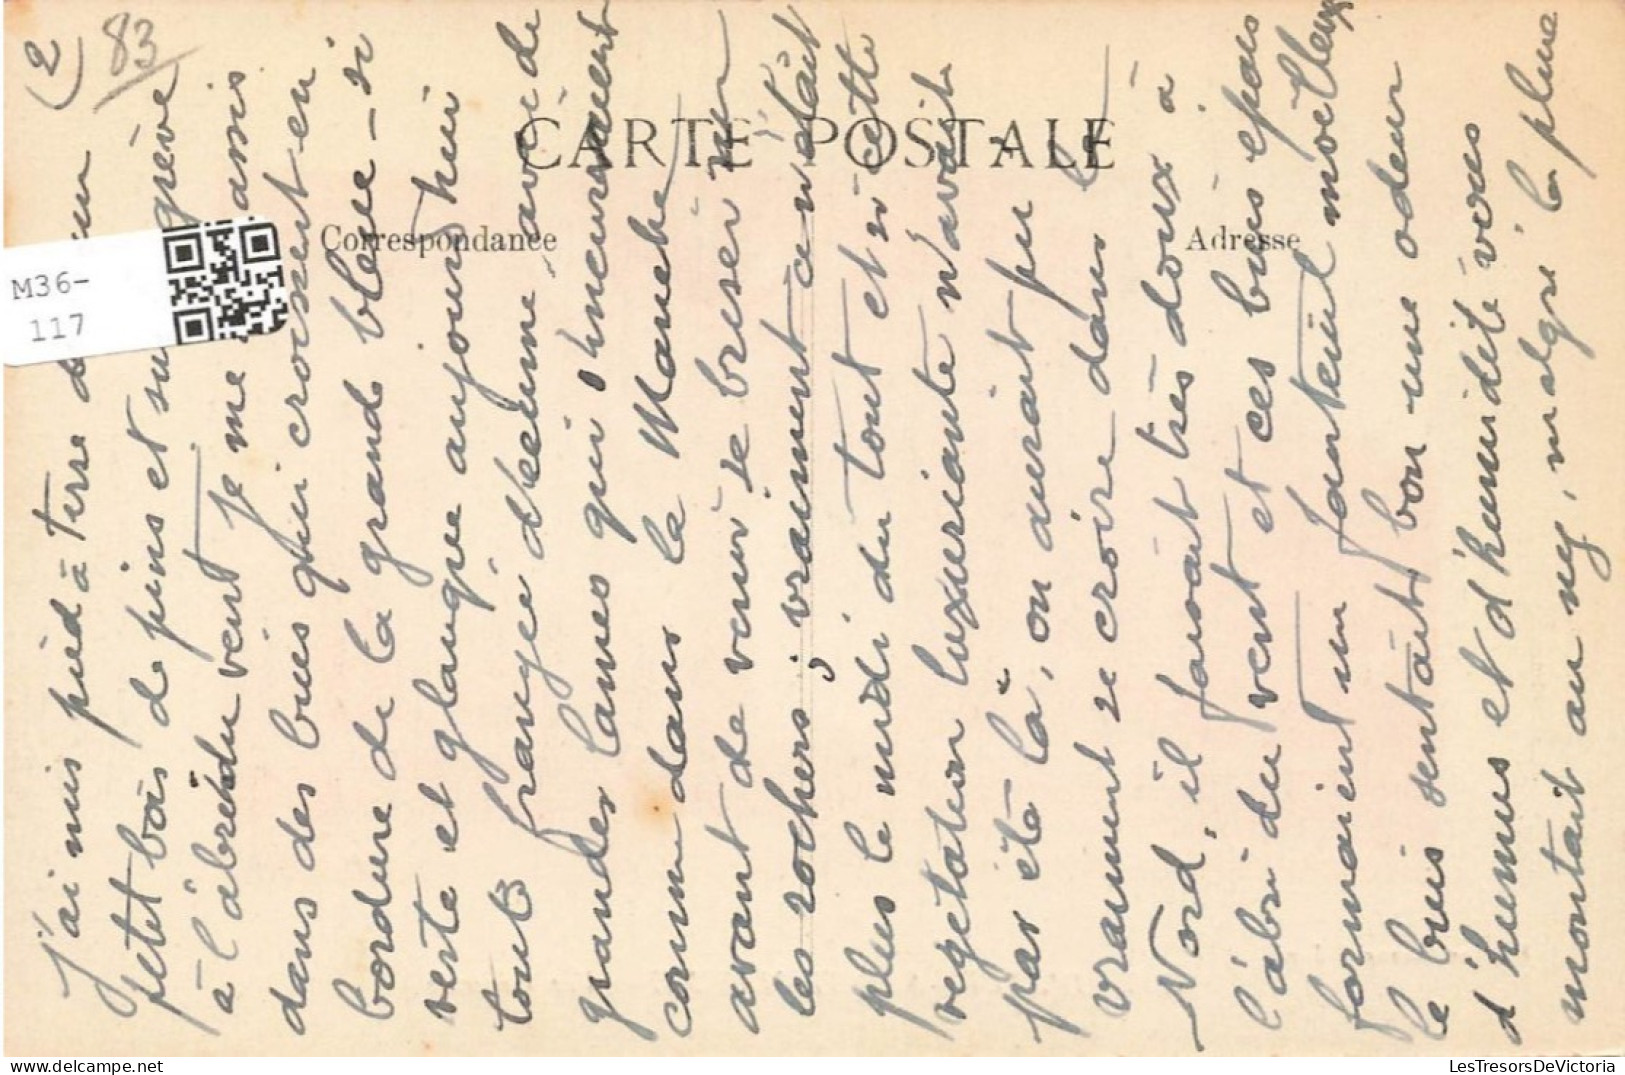 2) 83
CARTE POSTALE
Correspondance
Adresse
M36-
117
j'ai mis pied à terre
petit bois de pins et sur grève
à l'abri du vent je me assis
dans des buis qui croissent en
bordure de la grande bleue - si
verte et glauque aujourd'hui
toute frangée d'écume avec de
grandes lames qui
comm dans la Manche
avant de venir se briser sur
les rochers, vraiment ce n'était
plus le midi du tout et si cette
vegetation luxuriante n'avait
pas été là, on aurait pu
vraiment se croire dans le
Nord, il faisait très doux à
l'abri du vent et ces buis épais
formaient un fauteuil moëlleux
le buis sentait bon - une odeur
d'humus et d'humidité vous
montait au nez, malgré la pluie
LesTresorsDeVictoria